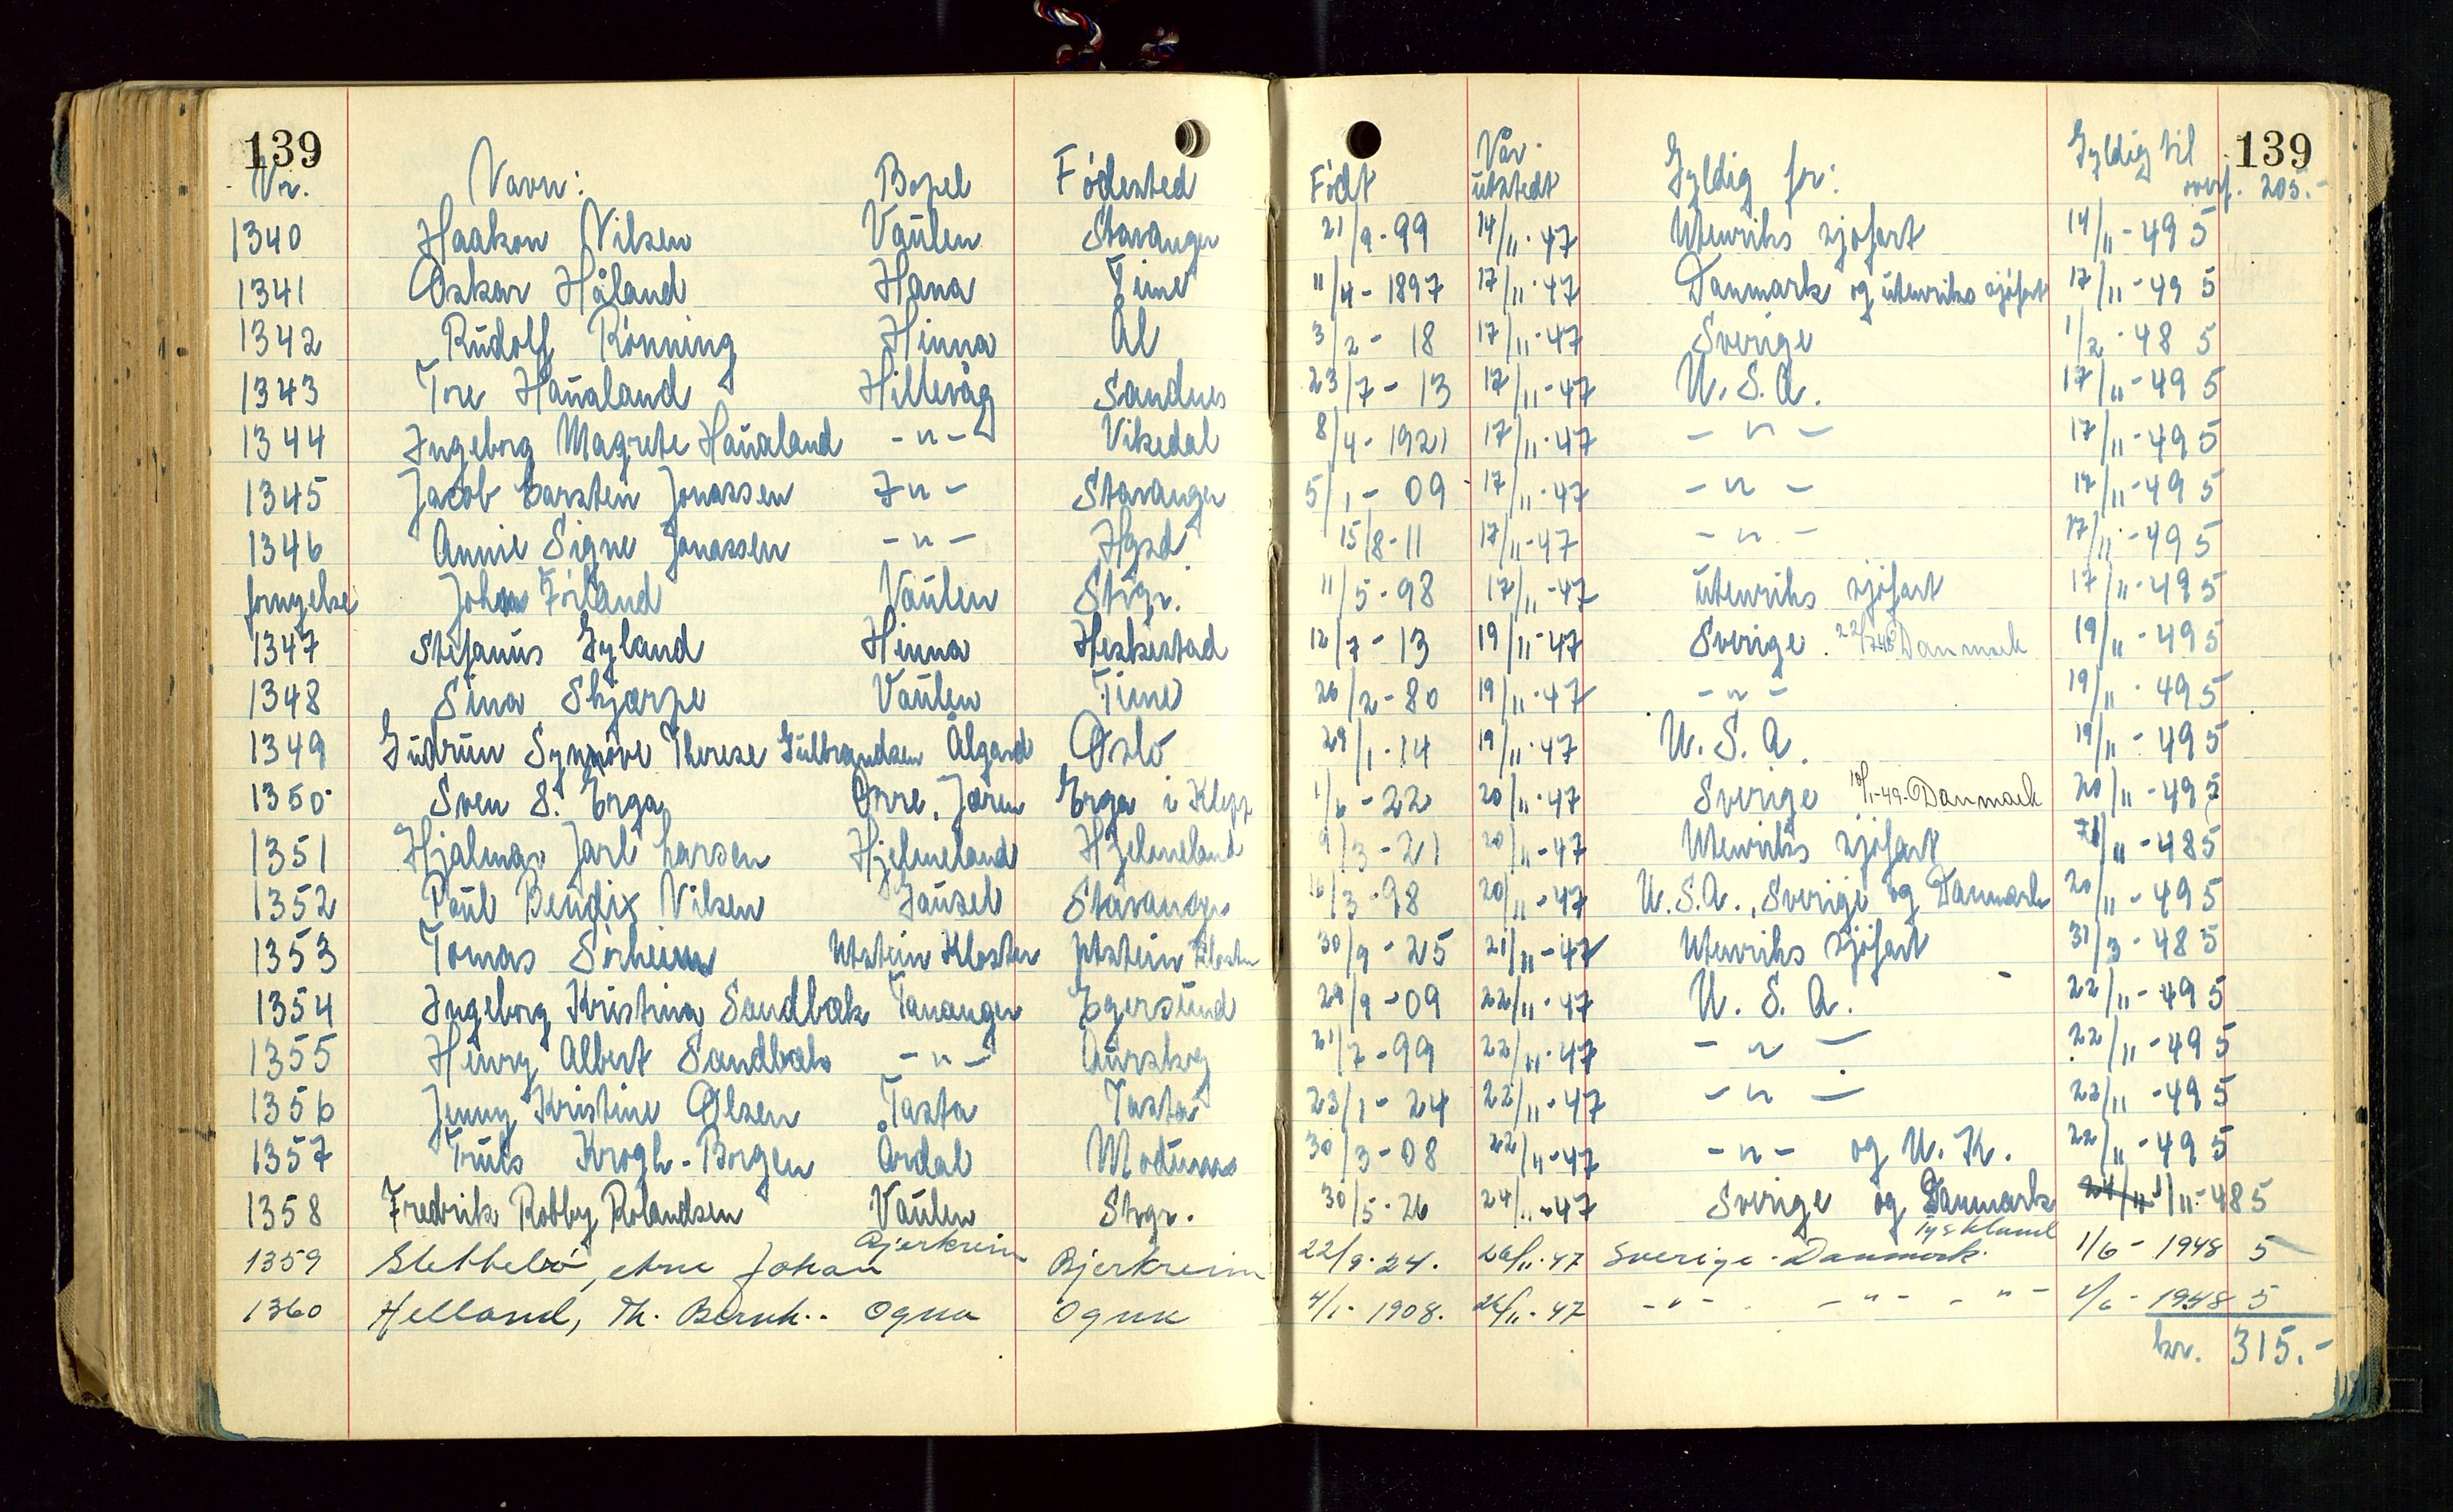 139 139
Nr. Navn: Bopel Fødested Født Når utstedt Gyldig for: Gyldig til overf. 205.-
1340 Haakon Nilsen Vaulen Stavanger 21/9-99 14/11-47 Utenriks sjøfart 14/11-49 5
1341 Oskar Håland Hana Time 11/4-1897 17/11-47 Danmark og utenriks sjøfart 17/11-49 5
1342 Rudolf Rønning Hinna Ål 3/2-18 17/11-47 Sverige 1/2-48 5
1343 Tore Haualand Hillevåg Sandnes 23/7-13 17/11-47 U.S.A. 17/11-49 5
1344 Ingeborg Magrete Haualand -"- Vikedal 8/4-1921 17/11-47 -"- 17/11-49 5
1345 Jacob Carsten Jonassen -"- Stavanger 5/1-09 17/11-47 -"- 17/11-49 5
1346 Annie Signe Jonassen -"- Hgsd 15/8-11 17/11-47 -"- 17/11-49 5
fornyelse Johan Førland Vaulen Stvgr. 11/5-98 17/11-47 utenriks sjøfart 17/11-49 5
1347 Stefanus Gyland Hinna Heskestad 12/7-13 19/11-47 Sverige. 22/7-48 Danmark 19/11-49 5
1348 Sina Skjærpe Vaulen Time 26/2-80 19/11-47 -"- 19/11-49 5
1349 Gudrun Synnøve Therese Gulbrandsen Ålgård Oslo 29/1-14 19/11-47 U.S.A. 19/11-49 5
1350 Sven S. Erga Orre, Jæren Erga i Klepp 1/6-22 20/11-47 Sverige 10/1-49-Danmark 20/11-49 5
1351 Hjalmar Jarl Larsen Hjelmeland Hjelmeland 9/3-21 20/11-47 Utenriks sjøfart /11-48 5
1352 Paul Bendix Nilsen Gausel Stavanger 16/3-98 20/11-47 U.S.A., Sverige og Danmark 20/11-49 5
1353 Tomas Sørheim Utstein Kloster Utstein Kloster 30/9-25 21/11-47 Utenriks sjøfart 31/3-48 5
1354 Ingeborg Kristina Sandbæk Tananger Egersund 29/9-09 22/11-47 U.S.A. 22/11-49 5
1355 Henry Albert Sandbæk -"- Aurskog 21/7-99 22/11-47 -"- 22/11-49 5
1356 Jenny Kristine Olsen Tasta Tasta 23/1-24 22/11-47 -"- 22/11-49 5
1357 Truls Krogh-Borgen Årdal Modum 30/3-08 22/11-47 -"- og U.K. 22/11-49 5
1358 Fredrik Robby Rolandsen Vaulen Stvgr. 30/5-26 24/11-47 Sverige og Danmark 1/11-48 5
1359 Slettebø, Arne Johan Bjerkreim Bjerkreim 22/9-24. 26/11-47 Sverige-Danmark. Tyskland 1/6-1948 5
1360 Helland, Th. Bernh.. Ogna Ogna 4/1-1908. 26/11-47 -"- -"- -"- 1/6-1948 5
kr. 315.-